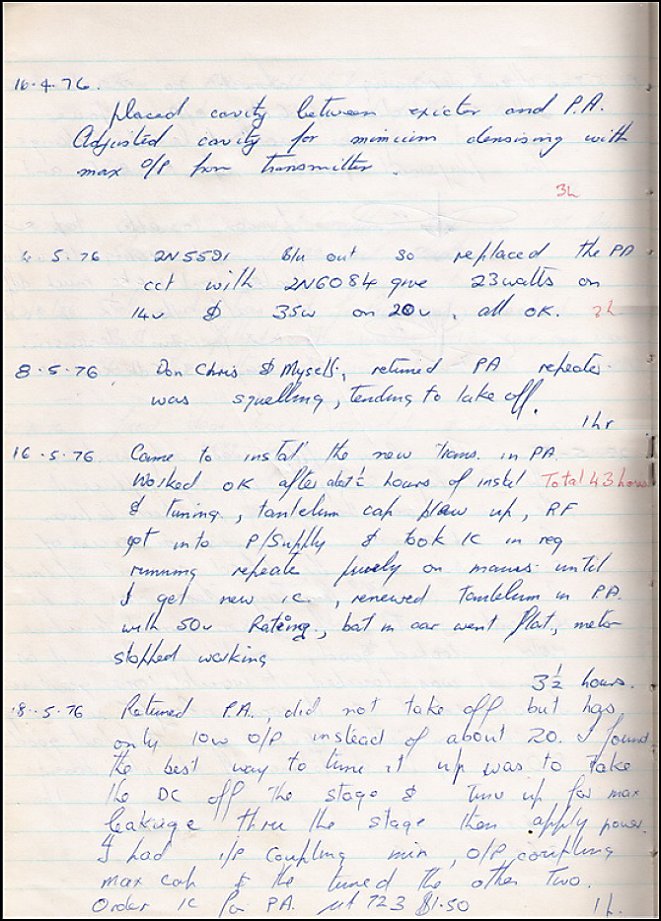 16.4.76.
placed cavity between exictor and P.A.
Adjusted cavity for mimicim densising with
max O/P from transmitter.
3h
5.76 2N5591 Blu out so replaced the PA
cct with 2N6084 give 23watts on
14v & 35w on 20v, all OK. 3h
8.5.76 Don Chris & Myself, retuned PA repeater
was squelling, tending to take off.
1hr
16.5.76 Came to instal the new trans. in PA.
Worked OK after hours of instal Total 43 hours
& tuning, tantelum cap blew up, RF
got into P/Supply & took IC in reg
running repeate purely on mains until
I get new ic, renewed Tantelum in PA.
with 50v Rating, bat in car went flat, meter
stopped working
3½ hours.
8.5.76 Retuned P.A., did not take off but has
only 10w O/P instead of about 20. I found
the best way to tune it up was to take
the DC off the stage & tune up for max
leakage thru the stage then apply power.
I had i/p coupling min, O/P coupling
max cap & the tuned the other two.
Order IC for PA. 723 $1.50 1h.